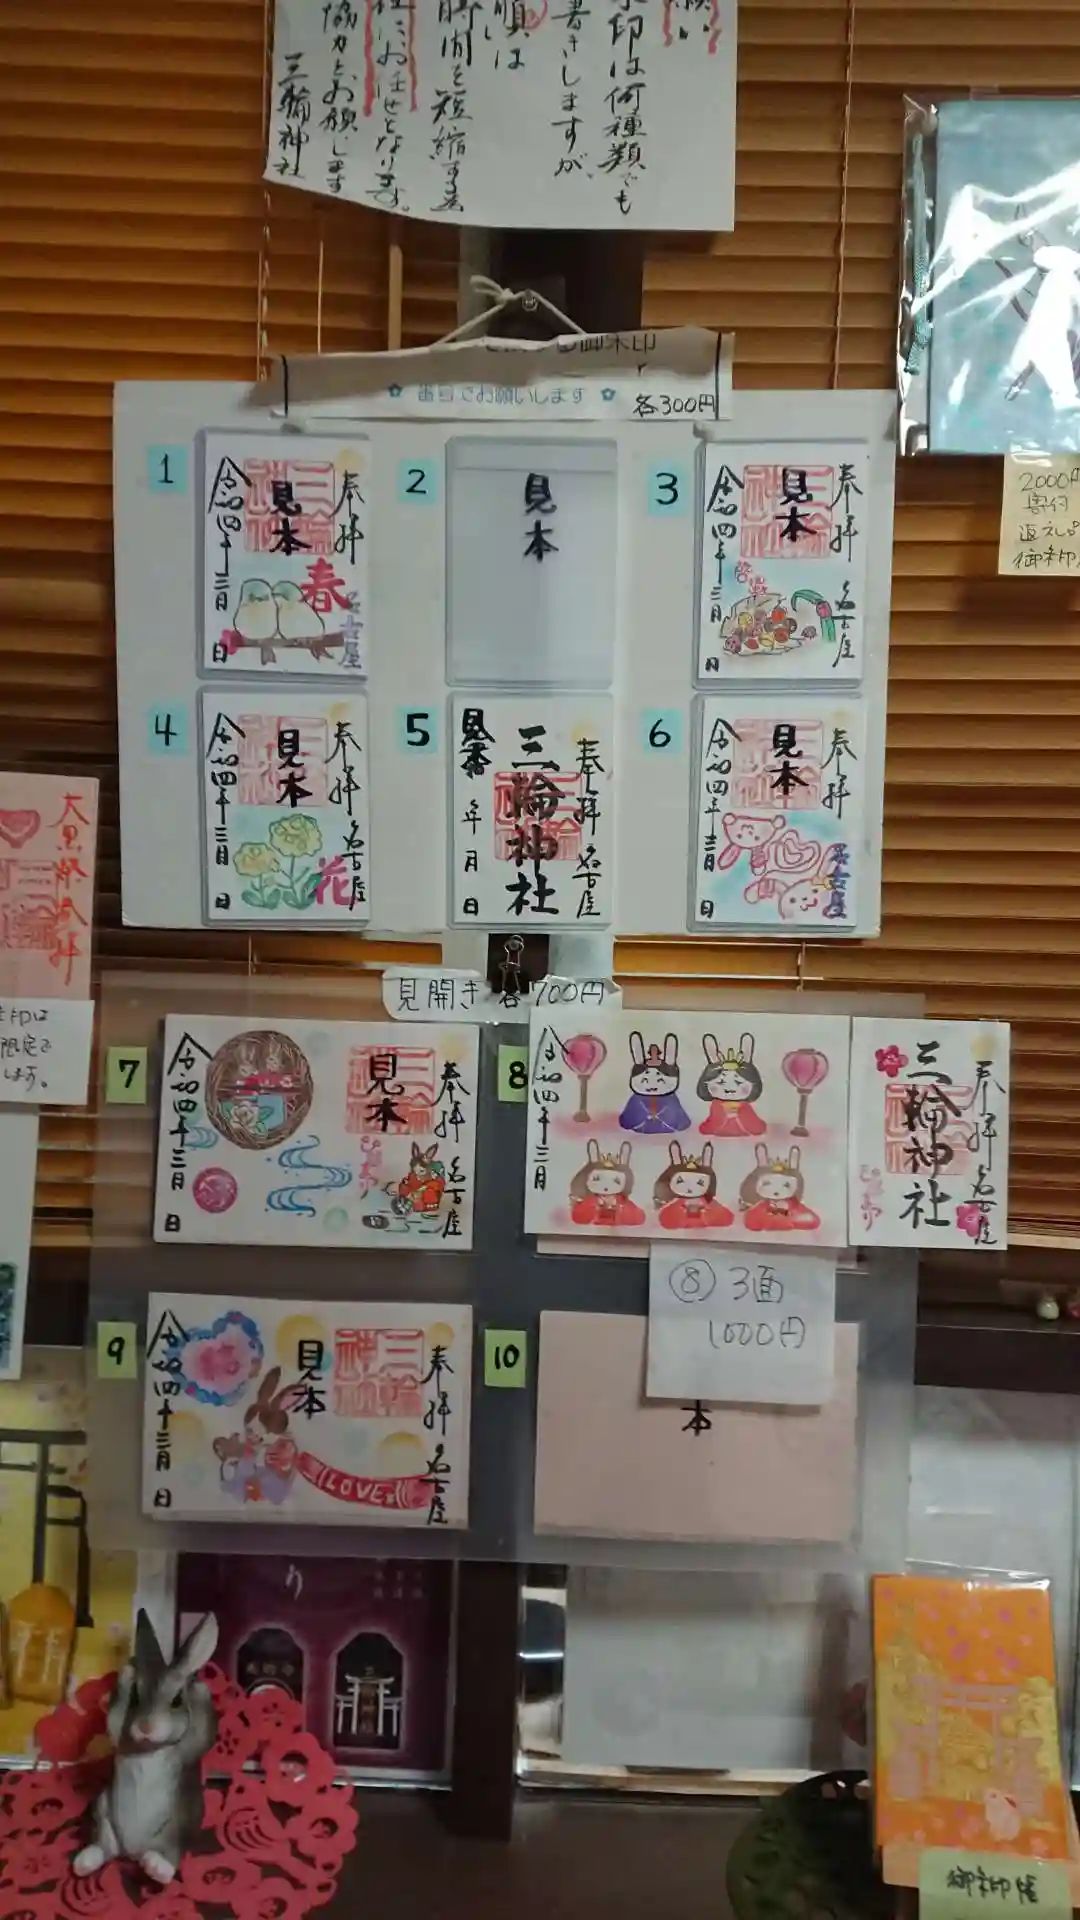 印は何種類でも
書きしますが、
順は
時間を短縮する為
にお任せとなります。
協力とお願いします
三輪神社
御朱印
番号でお願いします
各300円
1
奉拝
見本
三輪神社
春
名古屋
令和四年三月
日
2
見本
3
奉拝
見本
三輪神社
名古屋
令和四年三月
日
4
奉拝
見本
三輪神社
名古屋
花
令和四年三月
日
5
奉拝
名古屋
三輪神社
見本
年月日
6
奉拝
見本
三輪神社
名古屋
令和四年三月
日
2000円
寄付
返礼品
御朱印
大黒祭
限定で
します。
見開き各700円
7
奉拝
名古屋
見本
三輪神社
令和四年三月
日
8
奉拝
名古屋
三輪神社
令和四年三月
⑧3面
1000円
9
奉拝
名古屋
見本
三輪神社
福
LOVE
令和四年三月
日
10
本
り
御朱印帳